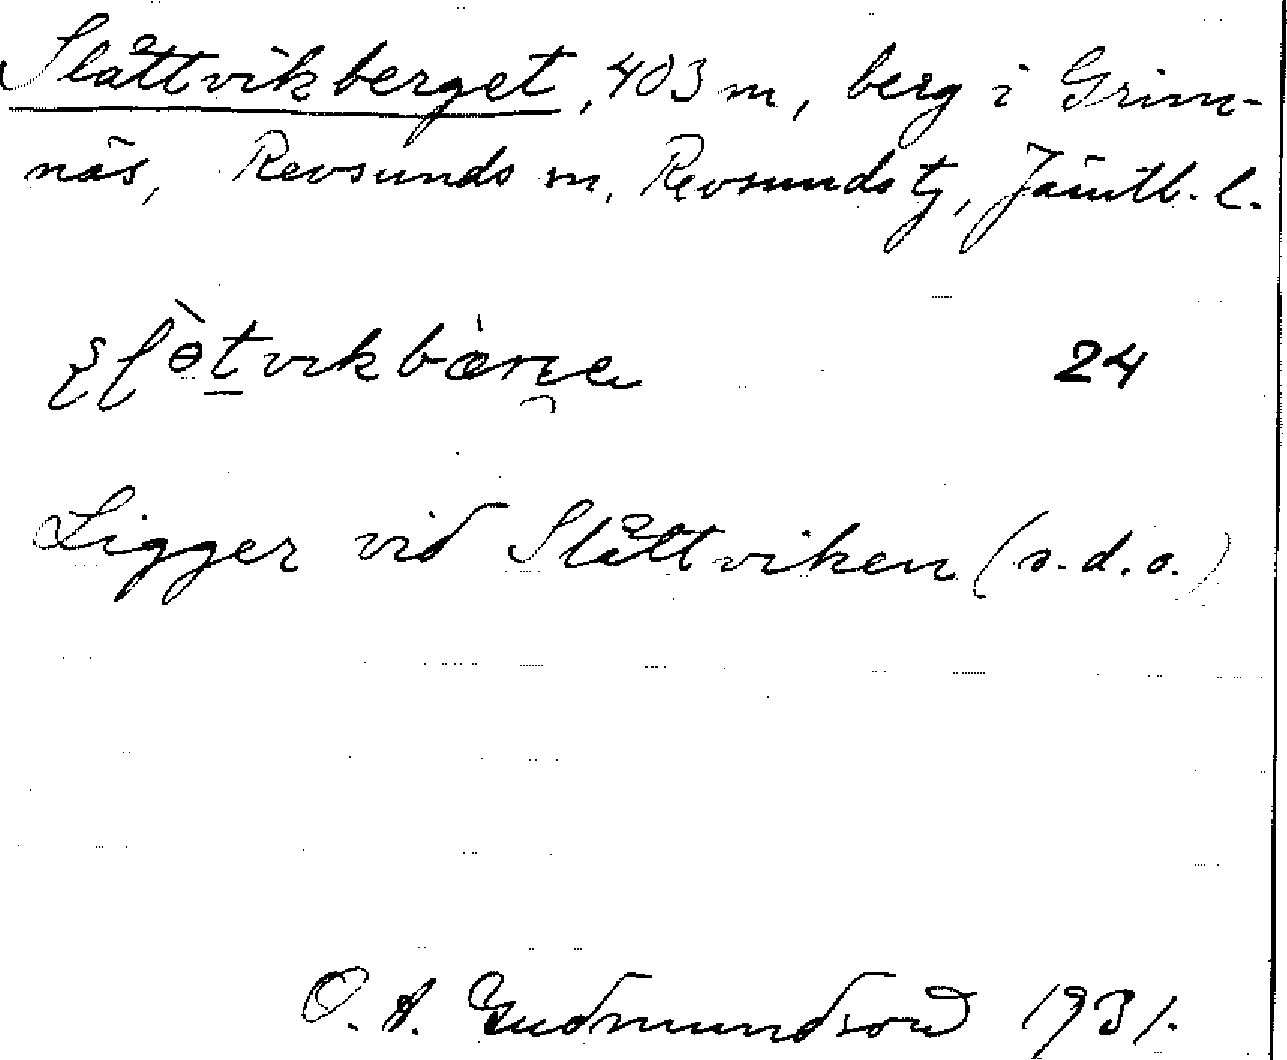 Slåttvikberget, 403 m, berg i Grim-
näs, Revsunds sn, Revsunds tg, Jämtl. l.
24
Ligger vid Slåttviken (s.d.o.)
O. A. Gudmundson 1931.